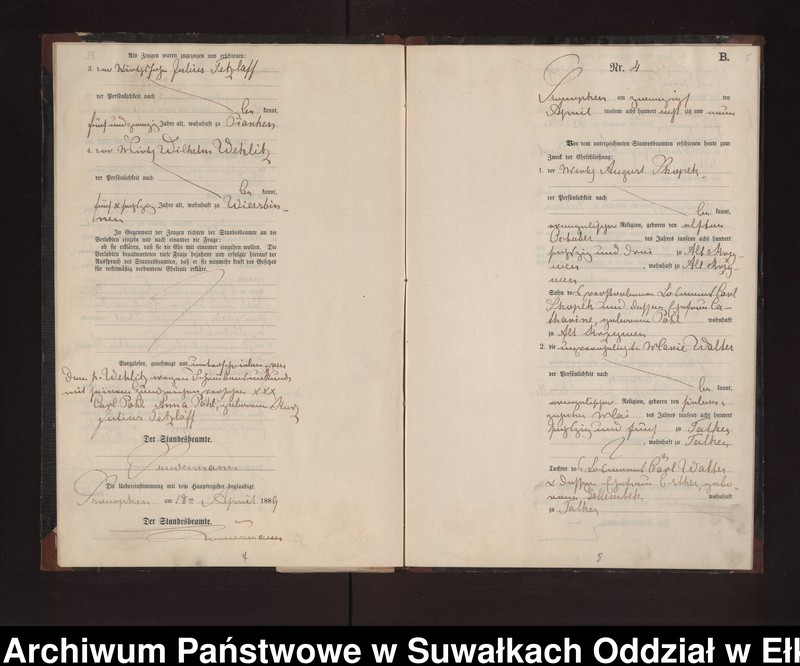 Als Zeugen waren zugezogen und erschienen:
3. der Wirthssohn Julius Tetzlaff
der Persönlichkeit nach
kannt,
fünf und zwanzig Jahre alt, wohnhaft zu
4. der Wirth Wilhelm Wehlitz
der Persönlichkeit nach
kannt,
fünf & Jahre alt, wohnhaft zu Wiersbin-
nen
In Gegenwart der Zeugen richtete der Standesbeamte an die
Verlobten einzeln und nach einander die Frage:
ob sie erklären, daß sie die Ehe mit einander eingehen wollen. Die
Verlobten beantworteten diese Frage bejahend und erfolgte hierauf der
Ausspruch des Standesbeamten, daß er sie nunmehr kraft des Gesetzes
für rechtmäßig verbundene Eheleute erkläre.
Vorgelesen, genehmigt und unterschrieben von
dem p. Wehlitz wegen Schreibensunkunde
mit seinem Handzeichen versehen xxx
Carl Pohl Anna Pohl, geborene
Julius Tetzlaff
Der Standesbeamte.
Die Uebereinstimmung mit dem Hauptregister beglaubigt.
am 18ten April 1889
Der Standesbeamte.
4
B.
5
Nr. 4
am zwanzigsten
April tausend acht hundert acht zig und neun
Vor dem unterzeichneten Standesbeamten erschienen heute zum
Zweck der Eheschließung:
1. der Wirth August Skopek
der Persönlichkeit nach
kannt,
evangelischer Religion, geboren den elften
October des Jahres tausend acht hundert
sechszig und drei zu Alt Krzy-
wen, wohnhaft zu Alt Krzy-
wen
Sohn des verstorbenen Losmanns Carl
Skopek und dessen Ehefrau Ca-
tharine, geborenen Pohl wohnhaft
zu Alt Krzywen
2. die unverehelichte Marie Walter
der Persönlichkeit nach
kannt,
evangelischer Religion, geboren den sieben-
zehnten Mai des Jahres tausend acht hundert
sechszig und fünf zu Talken
, wohnhaft zu Talken
Tochter des Losmanns Carl Walter
& dessen Ehefrau Esther, gebo-
renen wohnhaft
zu Talken
8
Archiwum Państwowe w Suwałkach Oddział w Ełk